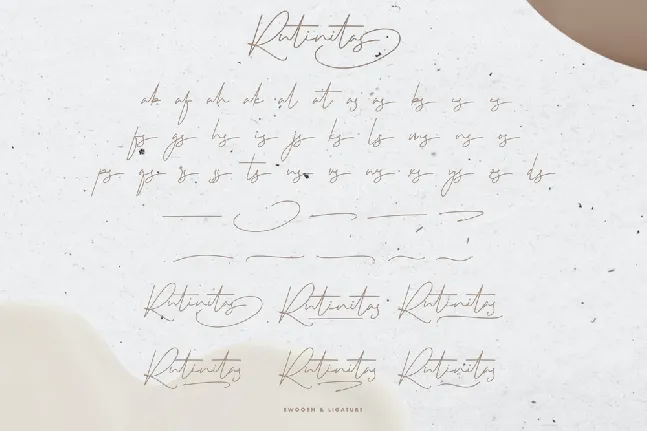 Rutinitas
ab af ah ak al at as as bs cs es
fs gs hs is js ks ls ms ns os
ps qs rs ss ts us vs ws xs ys zs ds
Rutinitas Rutinitas Rutinitas
Rutinitas Rutinitas Rutinitas
SWOOSH & LIGATURE